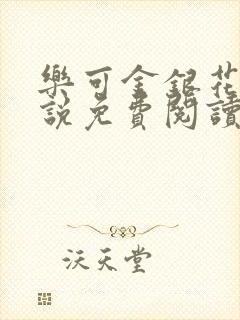 樂可金銀花
說免費閱讀
沃天堂